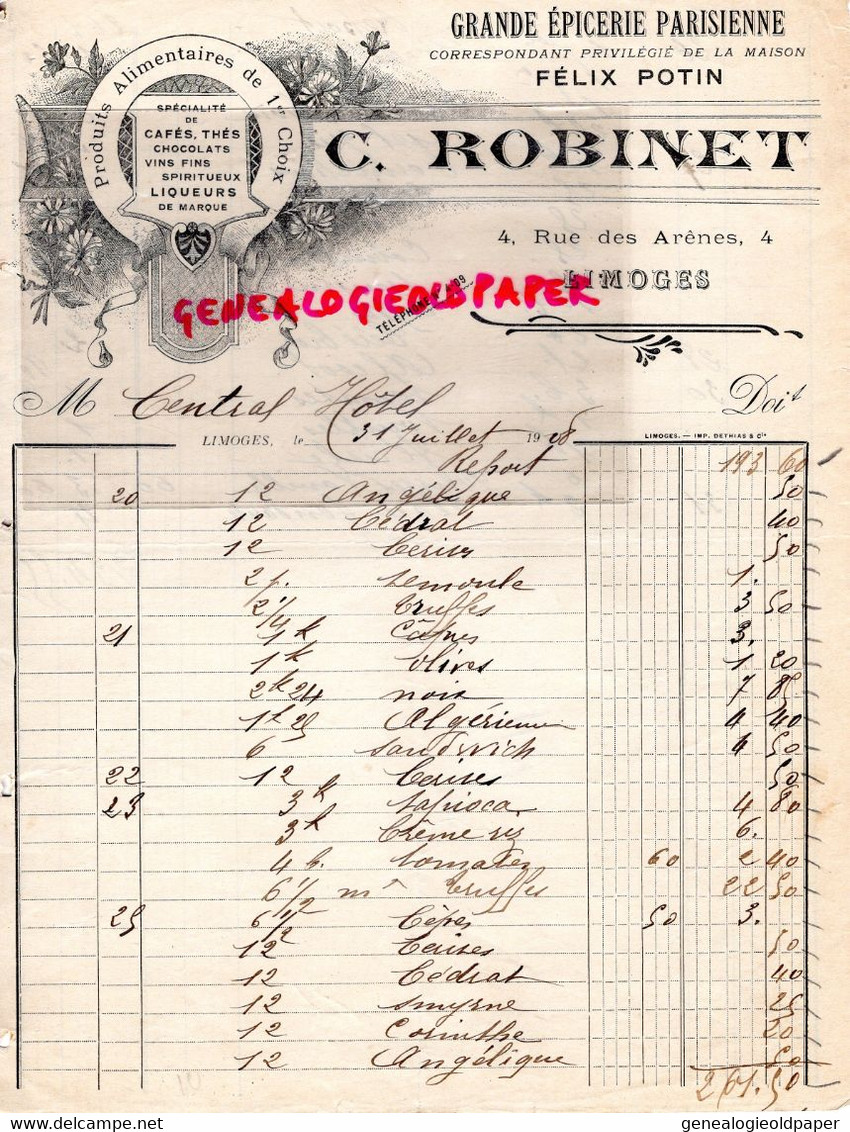 GRANDE ÉPICERIE PARISIENNE
CORRESPONDANT PRIVILÉGIÉ DE LA MAISON
FÉLIX POTIN
Produits Alimentaires de 1er Choix
SPÉCIALITÉ
DE
CAFÉS, THÉS
CHOCOLATS
VINS FINS
SPIRITUEUX
LIQUEURS
DE MARQUE
C. ROBINET
4, Rue des Arênes, 4
LIMOGES
TÉLÉPHONE
GENEALOGIEOLDPAPER
M Central Hôtel Doit
LIMOGES, le 31 Juillet 1908
LIMOGES. — IMP. DETHIAS & Cie
Report 193 60
20 12 Angélique 50
12 Cédrat 40
12 Cerises 50
2 p. semoule 1.
2 1/4 truffes 3 50
21 1 k Câpres 3.
1 k olives 1 20
2 k 24 noix 7 85
1 k 25 Algérienne 4 40
6 sandwich 4 50
22 12 Cerises 50
23 3 k tapioca 4 80
3 k Crême riz 6.
4 b. tomates 60 2 40
6 1/2 truffes 22 50
25 6 1/2 Cèpes 50 3.
12 Cerises 50
12 Cédrat 40
12 Smyrne 25
12 Corinthe 20
12 Angélique 50
261.50
genealogieoldpaper